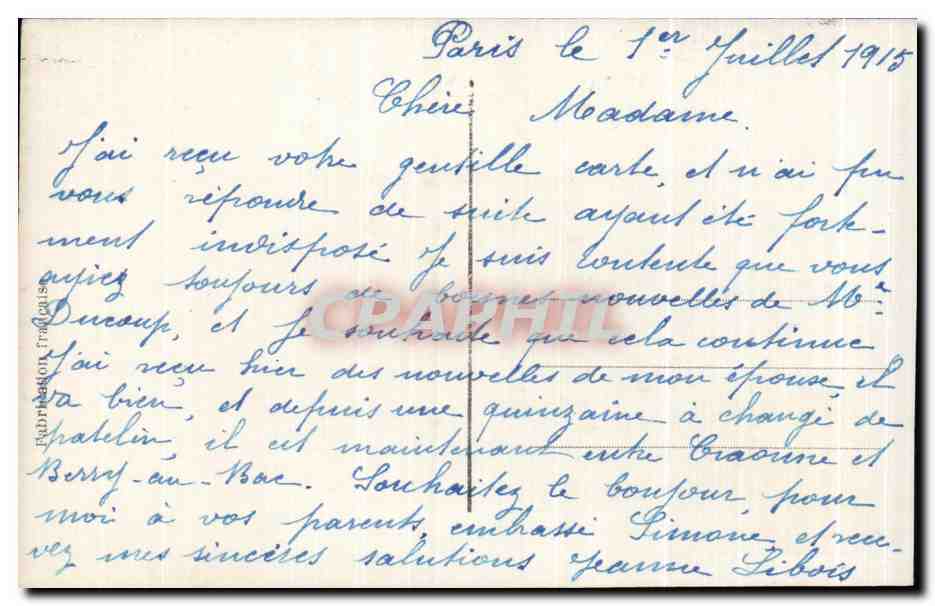 Paris le 1er Juillet 1915
Chère Madame.
J'ai reçu votre gentille carte, et n'ai pu
vous répondre de suite ayant été forte-
ment indisposé Je suis contente que vous
ayiez toujours de bonnes nouvelles de Mr
Ducoup, et je souhaite que cela continue
J'ai reçu hier des nouvelles de mon épouse, il
va bien, et depuis une quinzaine à changé de
patelin, il est maintenant entre Craonne et
Berry-au-Bac. Souhaitez le bonjour pour
moi à vos parents, embrassé Simone, et rece-
vez mes sincères salutions Jeanne Libois
Fabrication française
CPAPHIL